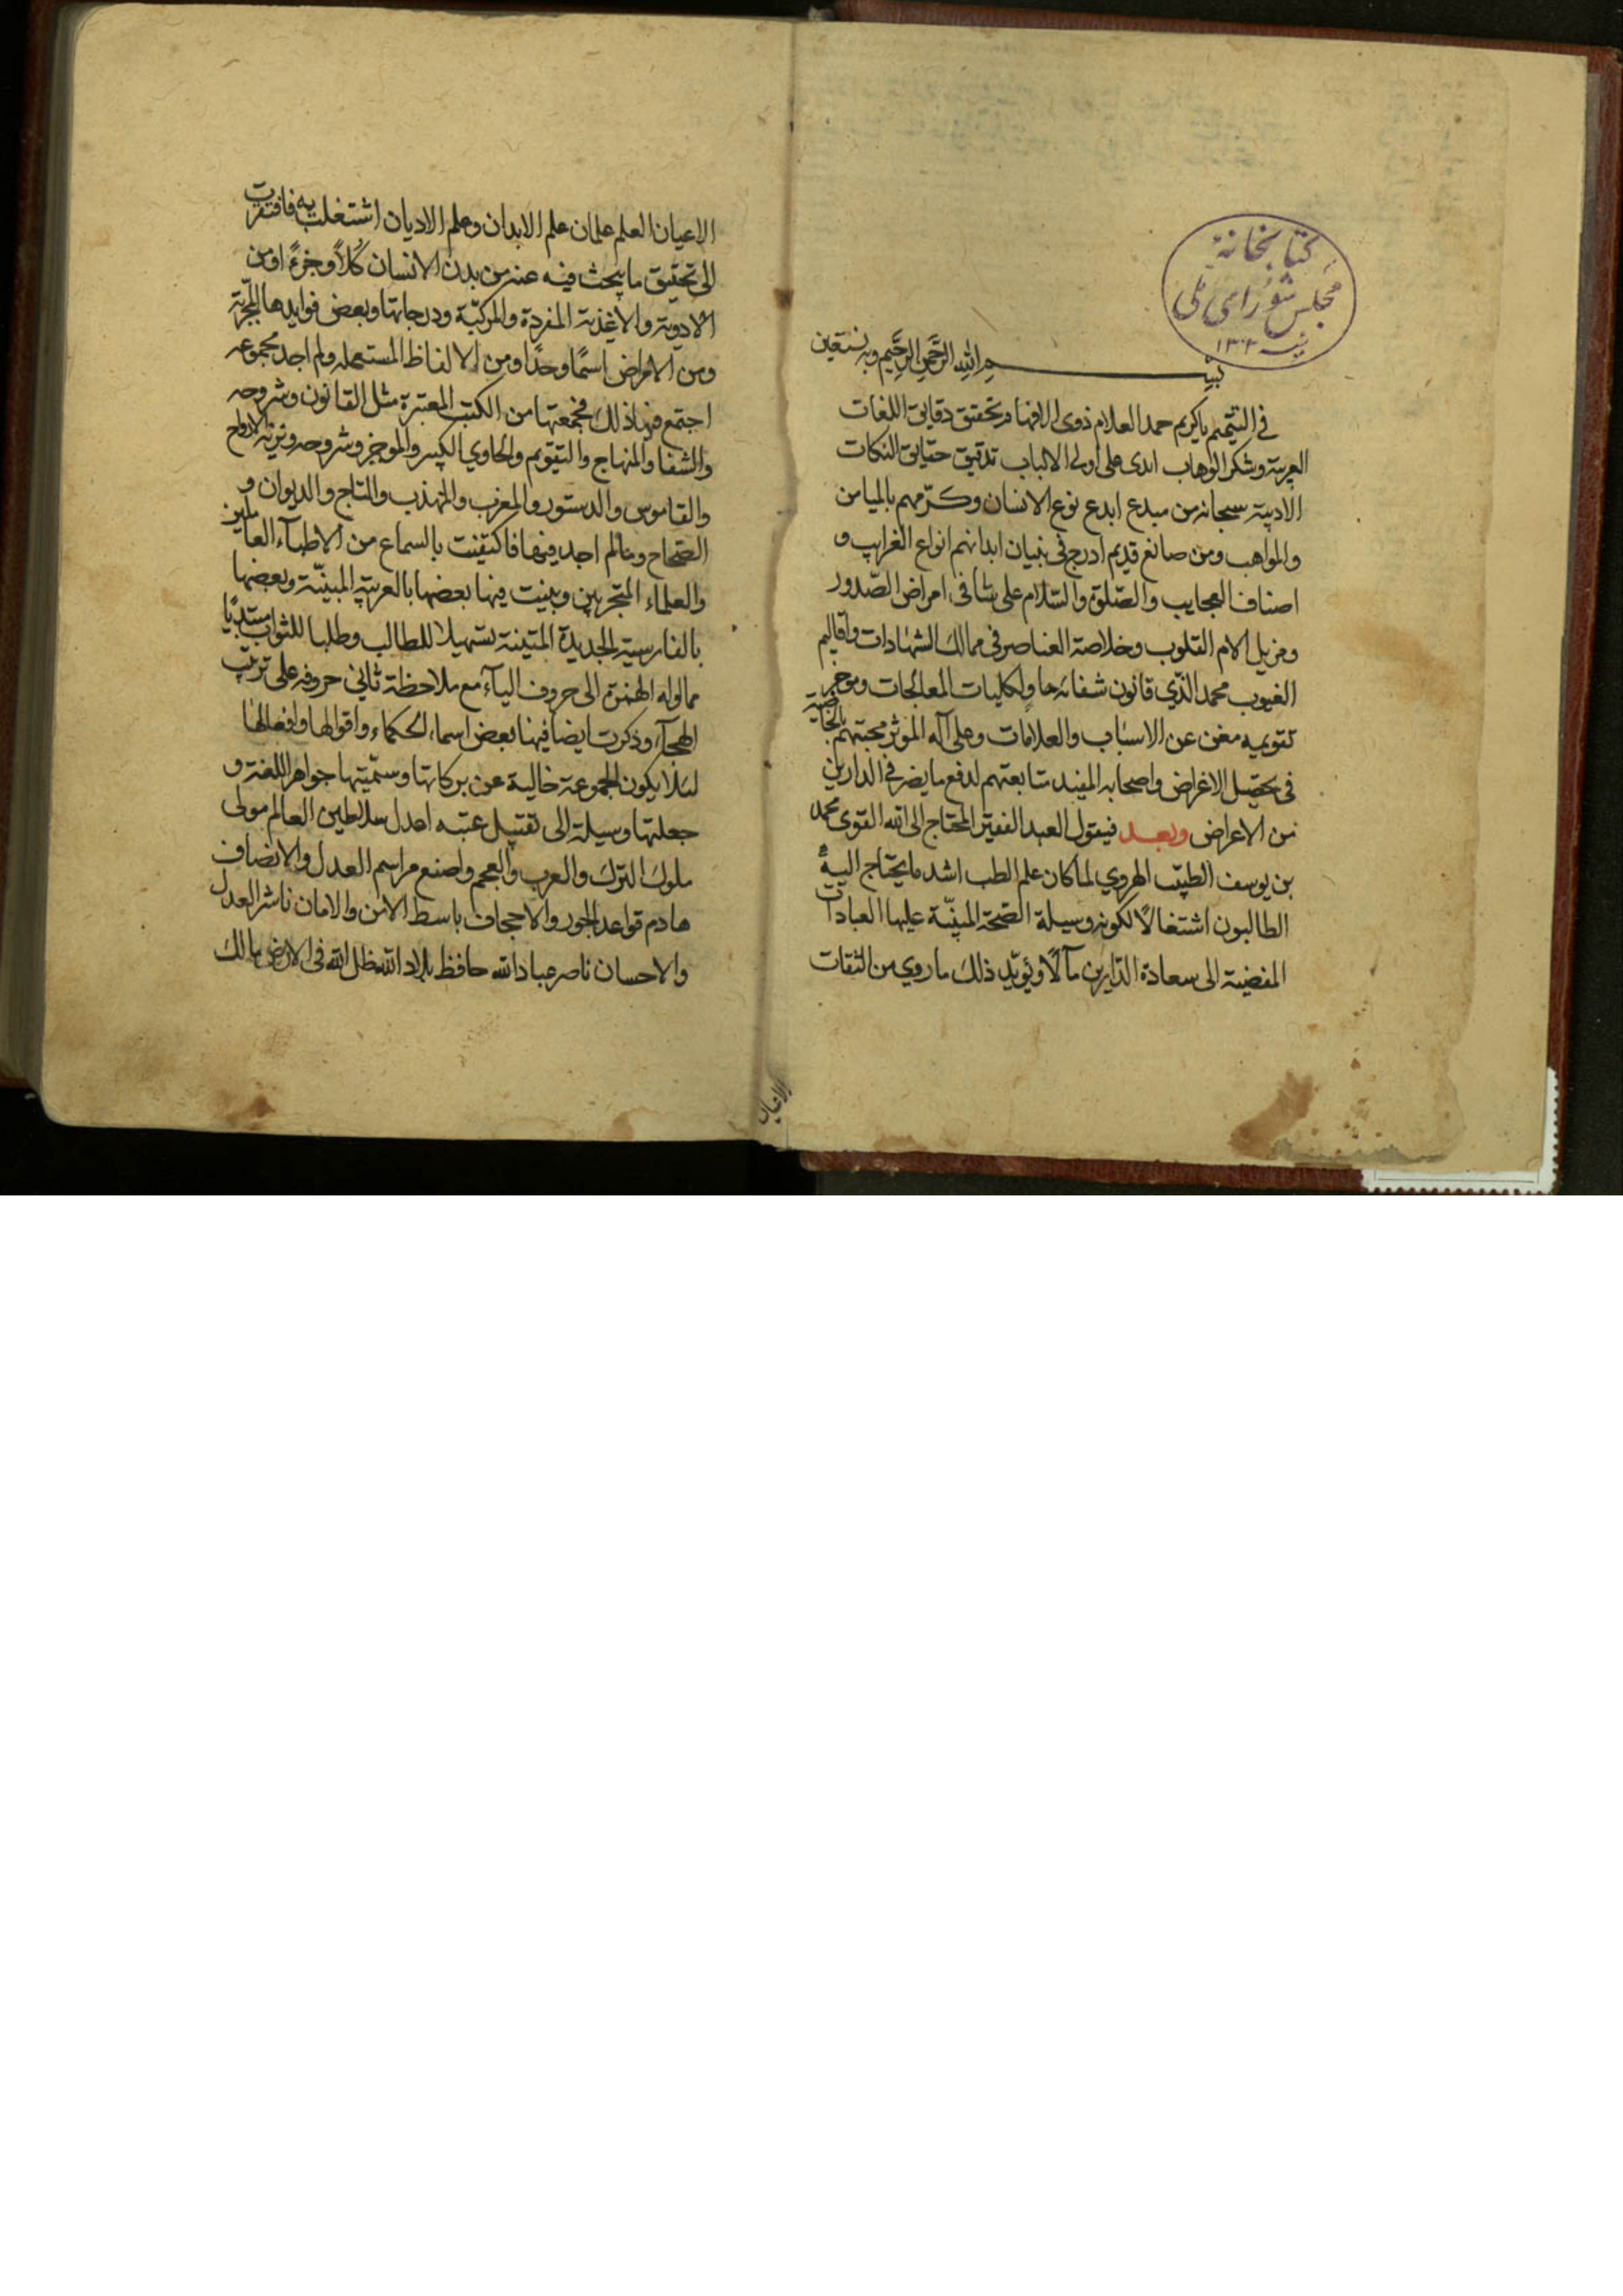 كتابخانهٔ
مجلس شورای ملی
سنه ۱۳۰۲
بسم الله الرحمن الرحيم وبه نستعين
في التتميم ياكريم حمد العلام ذوى الافهام تحقيق دقايق اللغات
العربية وشكر الوهاب ابدى على اولى الالباب تدقيق حقايق النكات
الادبية سبحانه من مبدع ابدع نوع الانسان وكرّمهم بالميامن
والمواهب ومن صانع قديم ادرج في بنيان ابدانهم انواع الغرايب و
اصناف العجايب والصلوة والسّلام على شافى امراض الصّدور
ومزيل الام القلوب وخلاصة العناصر في ممالك الشهادات واقاليم
الغيوب محمد الذّي قانون شفائه حاو لكليات المعالجات وموجز
تقويمه مغن عن الاسباب والعلامات وعلى آله الموثر محبتهم بالخاصية
في تحصيل الاغراض واصحابه المفيد متابعتهم لدفع ما يضر في الدارين
من الاعراض وبعد فيقول العبد الفقير المحتاج الى الله القوى محمد
بن يوسف الطبيب الهروي لما كان علم الطب اشد ما يحتاج اليه
الطالبون اشتغالًا لكونه وسيلة الصّحة المبنيّة عليها العبادات
المفضية الى سعادة الدّارين مآلًا ويؤيّد ذلك ما روي من الثقات
الاعيان
الاعيان العلم علمان علم الابدان وعلم الاديان اشتغلت به فافتقرت
الى تحقيق ما يبحث فيه عنه من بدن الانسان كُلًّا وجزءً او من
الادوية والاغذية المفردة والمركبّة ودرجاتها وبعض فوايدها المجرّبة
ومن الامراض اسمًا وحدًا ومن الالفاظ المستعمله ولم اجد مجموعه
اجتمع فيها ذلك فجمعتها من الكتب المعتبرة مثل القانون وشروحه
والشفا والمنهاج والتقويم والحاوي الكبير والموجز وشروحه ونزهة الارواح
والقاموس والدستور والمغرب والمهذب والتاج والديوان و
الصّحاح وما لم اجد فيها فاكتفيت بالسماع من الاطبآء العاملين
والعلماء المتبحّرين وبينت فيها بعضها بالعربيّة المبينّة وبعضها
بالفارسية الجديدة المتينة تسهيلا للطالب وطلبا للثواب مبتديًا
مما اوله الهمزة الى حروف اليآء مع ملاحظة ثاني حروفه على ترتيب
الهجآء وذكرت ايضا فيها بعض اسماء الحكماء واقوالها وافعالها
لئلا يكون المجموعة خالية عن بركاتها وسمّيتها جواهر اللغة و
جعلتها وسيلة الى تقبيل عتبه اعدل سلاطين العالم مولى
ملوك الترك والعرب والعجم واضع مراسم العدل والانصاف
هادم قواعد الجور والاجحاف باسط الامن والامان ناشر العدل
والاحسان ناصر عباد الله حافظ بلاد الله ظل الله في الارض مالك